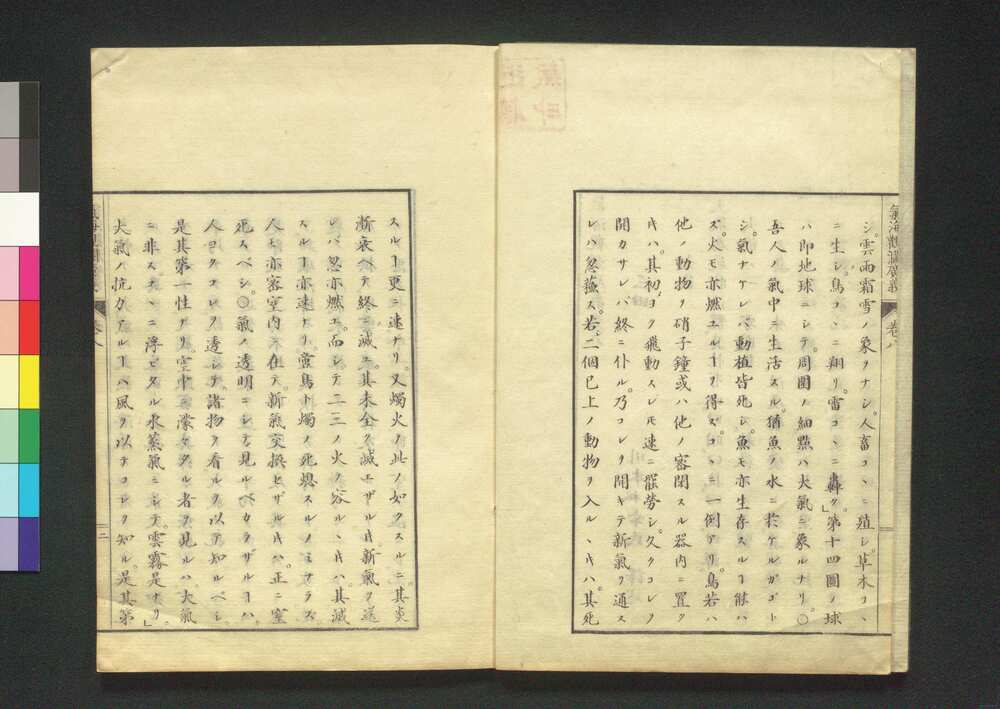 氣海觀瀾廣義 卷八
シ。雲雨霜雪ノ象ヲナシ。人畜コヽニ殖シ。草木コヽ
ニ生シ。鳥コヽニ翔リ。雷コヽニ轟ク。」第十四圖ノ球
ハ即地球ニシテ。周圍ノ細點ハ大氣ニ象ルナリ。○
吾人ノ氣中ニ生活スル。猶魚ノ水ニ於ケルガゴト
シ。氣ナケレバ動植皆死シ。魚モ亦生存スルヿ能ハ
ズ。火モ亦燃ユルヿヲ得ズ。コヽニ一例アリ。鳥若ハ
他ノ動物ヲ硝子鐘或ハ他ノ密閉スル器內ニ置ク
キハ。其初ヨク飛動スレモ。速ニ罷勞シ。久クコレヲ
開カサレバ終ニ仆ル。乃コレヲ開キテ新氣ヲ通ス
レハ忽蘓ス。若シ二個已上ノ動物ヲ入ルヽキハ。其死
スルヿ更ニ速ナリ。又燭火ヲ此ノ如クスルニ。其炎
漸衰ヘテ終ニ滅ユ。其未全ク滅エザルキ。新氣ヲ送
レバ忽亦燃ユ。而シテ二三ノ火ヲ容ルヽキハ。其滅
スルヿ亦速ナリ。啻鳥ト燭ノ死熄スルノミナラズ。
人モ亦密室內ニ在テ。新氣交換セザルキハ。正ニ窒
死スベシ。○氣ノ透明ニシテ見ルベカラザルヿハ。
人ヨクコレヲ透シテ。諸物ヲ看ルヲ以テ知ルベシ。
是其第一性ナリ。空中ニ濛々タル者ヲ見ルハ。大氣
ニ非ス。コヽニ浮ビタル水蒸氣ニシテ。雲霧是ナリ。」
大氣ノ抗力アルヿハ風ヲ以テコレヲ知ル。是其第
卷八
二